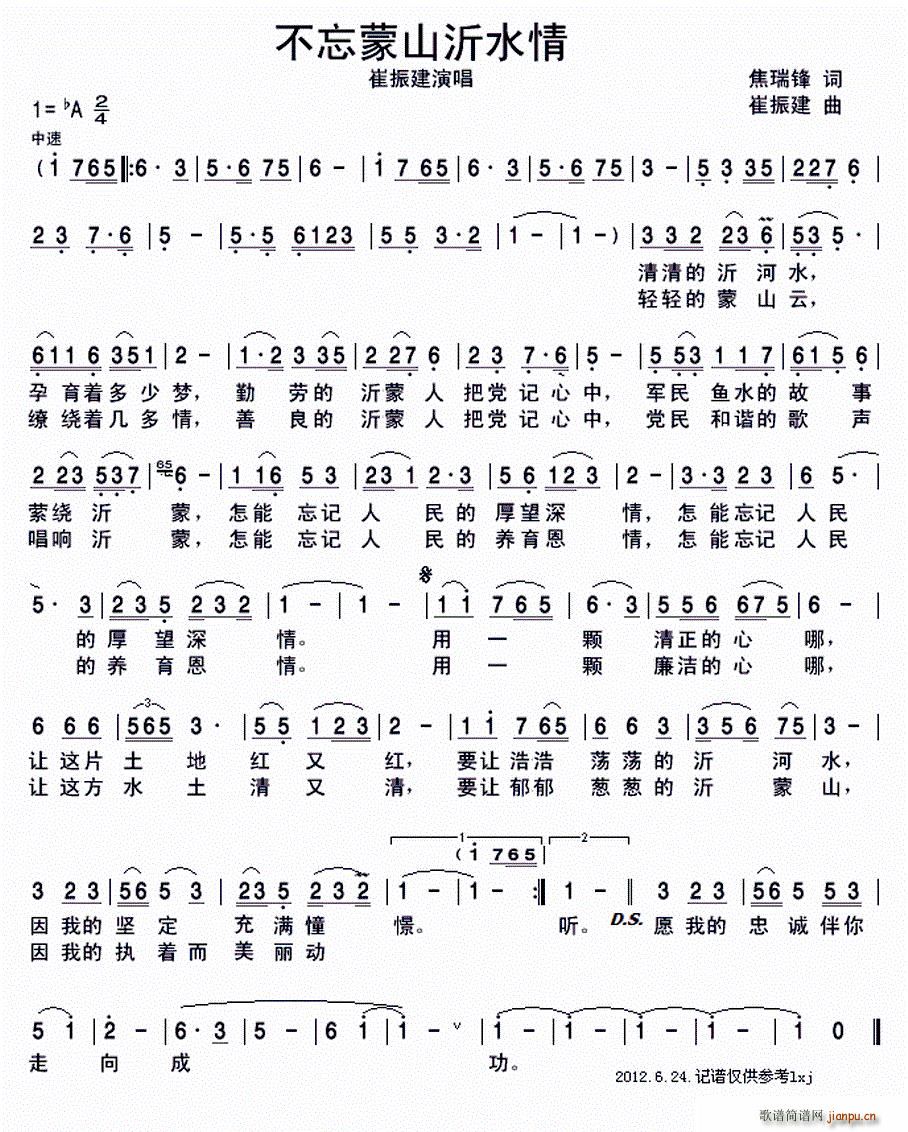 不忘蒙山沂水情
崔振建演唱
焦瑞锋 词
崔振建 曲
1=♭A 2/4
中速
(i 765 |:6· 3 | 5·6 75 | 6 - | i 7 65 | 6· 3 | 5·6 75 | 3 - | 5 3 35 | 227 6 |
2 3 7·6 | 5 - | 5·5 6123 | 55 3·2 | 1 - | 1 - ) | 3 3 2 23 6 | 53 5· |
清清的沂河水,
轻轻的蒙山云,
611 6 351 | 2 - | 1·2 3 35 | 2 27 6 | 2 3 7·6 | 5 - | 5 53 1 1 7 | 61 5 6 |
孕育着多少梦, 勤劳的沂蒙人把党记心中, 军民鱼水的故事
缭绕着几多情, 善良的沂蒙人把党记心中, 党民和谐的歌声
2 23 537 | 65 6 - | 1 16 5 3 | 23 1 2·3 | 5 6 123 | 2 - | 3·3 2 3 | 6 5· |
萦绕沂蒙, 怎能忘记人民的厚望深情, 怎能忘记人民
唱响沂蒙, 怎能忘记人民的养育恩情, 怎能忘记人民
5· 3 | 23 5 232 | 1 - | 1 - | 1 i 765 | 6· 3 | 5 5 6 675 | 6 - |
的厚望深情。 用一颗清正的心哪,
的养育恩情。 用一颗廉洁的心哪,
6 6 6 | 3 565 3· | 5 5 123 | 2 - | 1 i 7 65 | 6 6 3 | 356 75 | 3 - |
让这片土地红又红, 要让浩浩荡荡的沂河水,
让这方水土清又清, 要让郁郁葱葱的沂蒙山,
1 2
(i 765 |
3 2 3 | 56 5 3 | 23 5 232 | 1 - | 1 - :| 1 - || 3 2 3 | 56 5 5 3 |
因我的坚定充满憧憬。 听。 D.S. 愿我的忠诚伴你
因我的执着而美丽动
5 i | 2 - | 6· 3 | 5 - | 6 i | i - ∨ | i - | i - | i - | i - | i 0 ‖
走向成功。
2012.6.24.记谱仅供参考lxj
歌谱简谱网 jianpu.cn